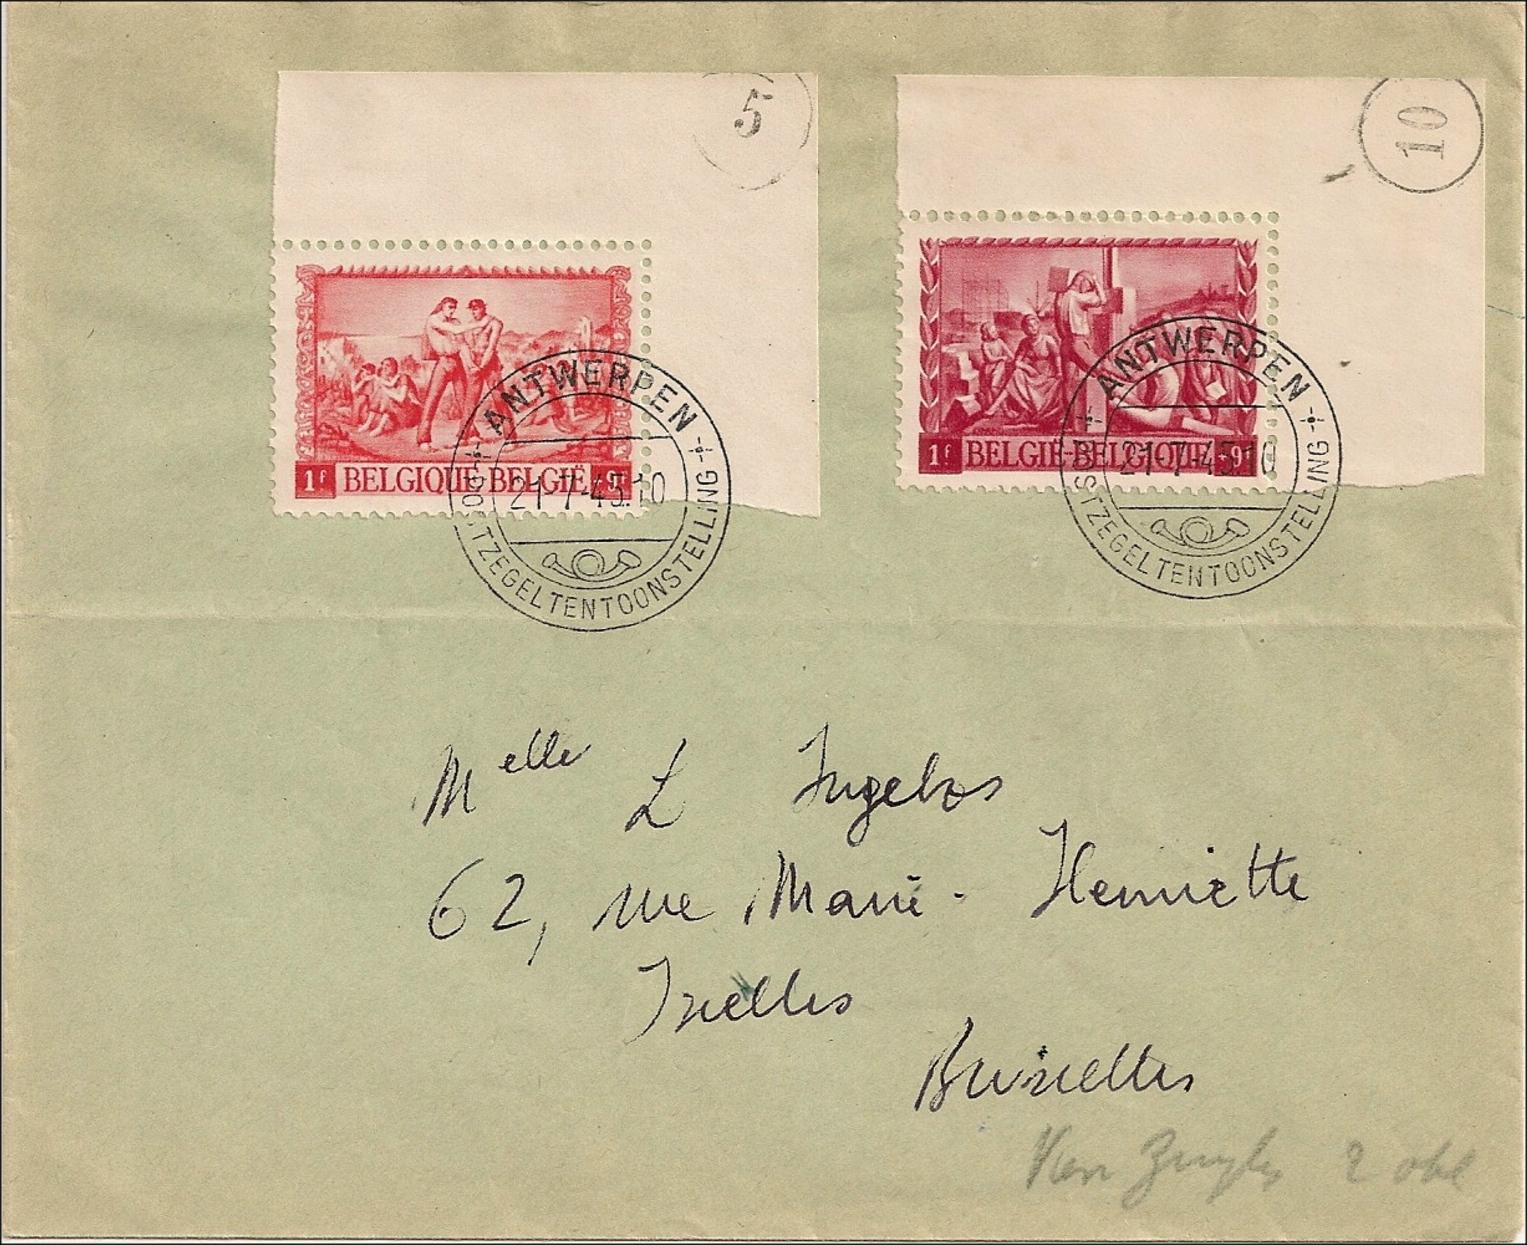 5
10
1F BELGIQUE-BELGIË +9F
1F BELGIË-BELGIQUE +9F
ANTWERPEN
21-7-45.10
POSTZEGELTENTOONSTELLING
ANTWERPEN
21-7-45.10
POSTZEGELTENTOONSTELLING
Melle L Ingelbos
62, rue Marie-Henriette
Ixelles
Bruxelles
Van 2 obl